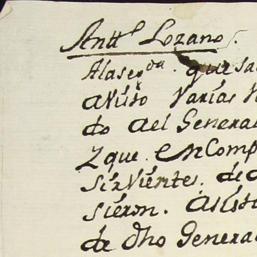 Antt.º Lozano.
Alaseg.da que sa
avisto varias v
do ael Genera
Zque en Comp
sirvientes. de
sieron. Asisti
de dho Genera